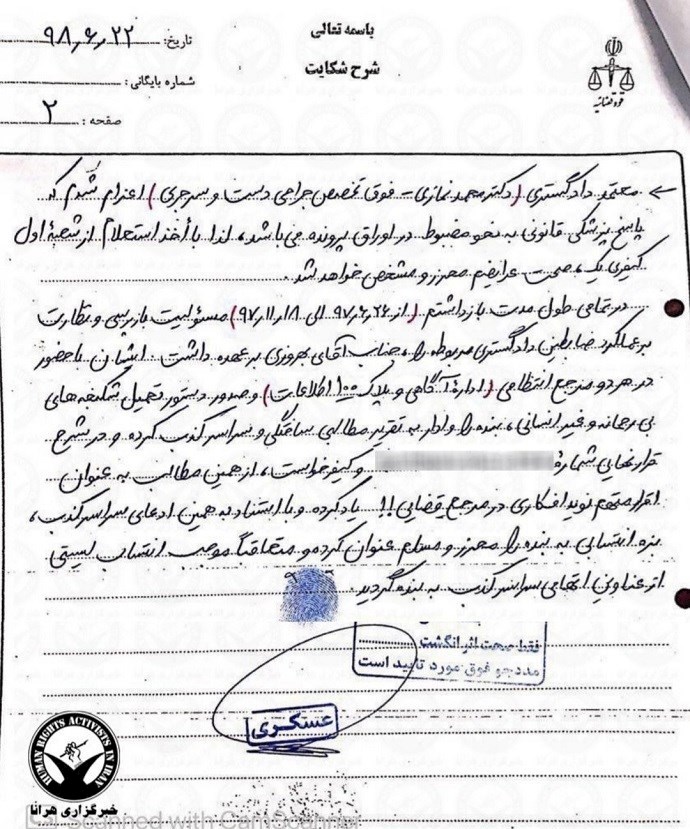 باسمه تعالی
شرح شکایت
تاریخ: ۹۸٫۶٫۲۲
شماره بایگانی:
صفحه: ۲
قوه قضائیه
معتمد دادگستری (دکتر محمد نمازی - فوق تخصص جراحی دست و سرجری) اعزام شدم که
پاسخ پزشکی قانونی به نحو مضبوط در اوراق پرونده می‌باشد، لذا با أخذ استعلام از شعبهٔ اول
کیفری یک، صحت عرایضم محرز و مشخص خواهد شد.
در تمامی طول مدت بازداشتم (از ۹۷٫۶٫۲۶ الی ۹۷٫۱۱٫۱۸) مسئولیت بازرسی و نظارت
بر عملکرد ضابطین دادگستری مربوطه را، جناب آقای بهروزی بر عهده داشت. ایشان با حضور
در هر دو مرجع انتظامی (ادارهٔ آگاهی و پلاک ۱۰۰ اطلاعات) و صدور دستور تحمیل شکنجه‌های
بی‌رحمانه و غیرانسانی، بنده را وادار به تقریر مطالبی ساختگی و سراسر کذب کرده و در شرح
قرار نهایی شمارهٔ و کیفرخواست، از همین مطالب به عنوان
اقرار متهم نوید افکاری در مرجع قضایی!! یاد کرده و با استناد به همین ادعای سراسر کذب،
بزه انتسابی به بنده را محرز و مسلم عنوان کرده و متعاقباً موجب انتساب لیستی
از عناوین اتهامی سراسر کذب به بنده گردید.
فقط صحت اثر انگشت
مددجو فوق مورد تایید است
عسکری
HUMAN RIGHTS ACTIVISTS IN IRAN
خبرگزاری هرانا
Scanned with CamScanner